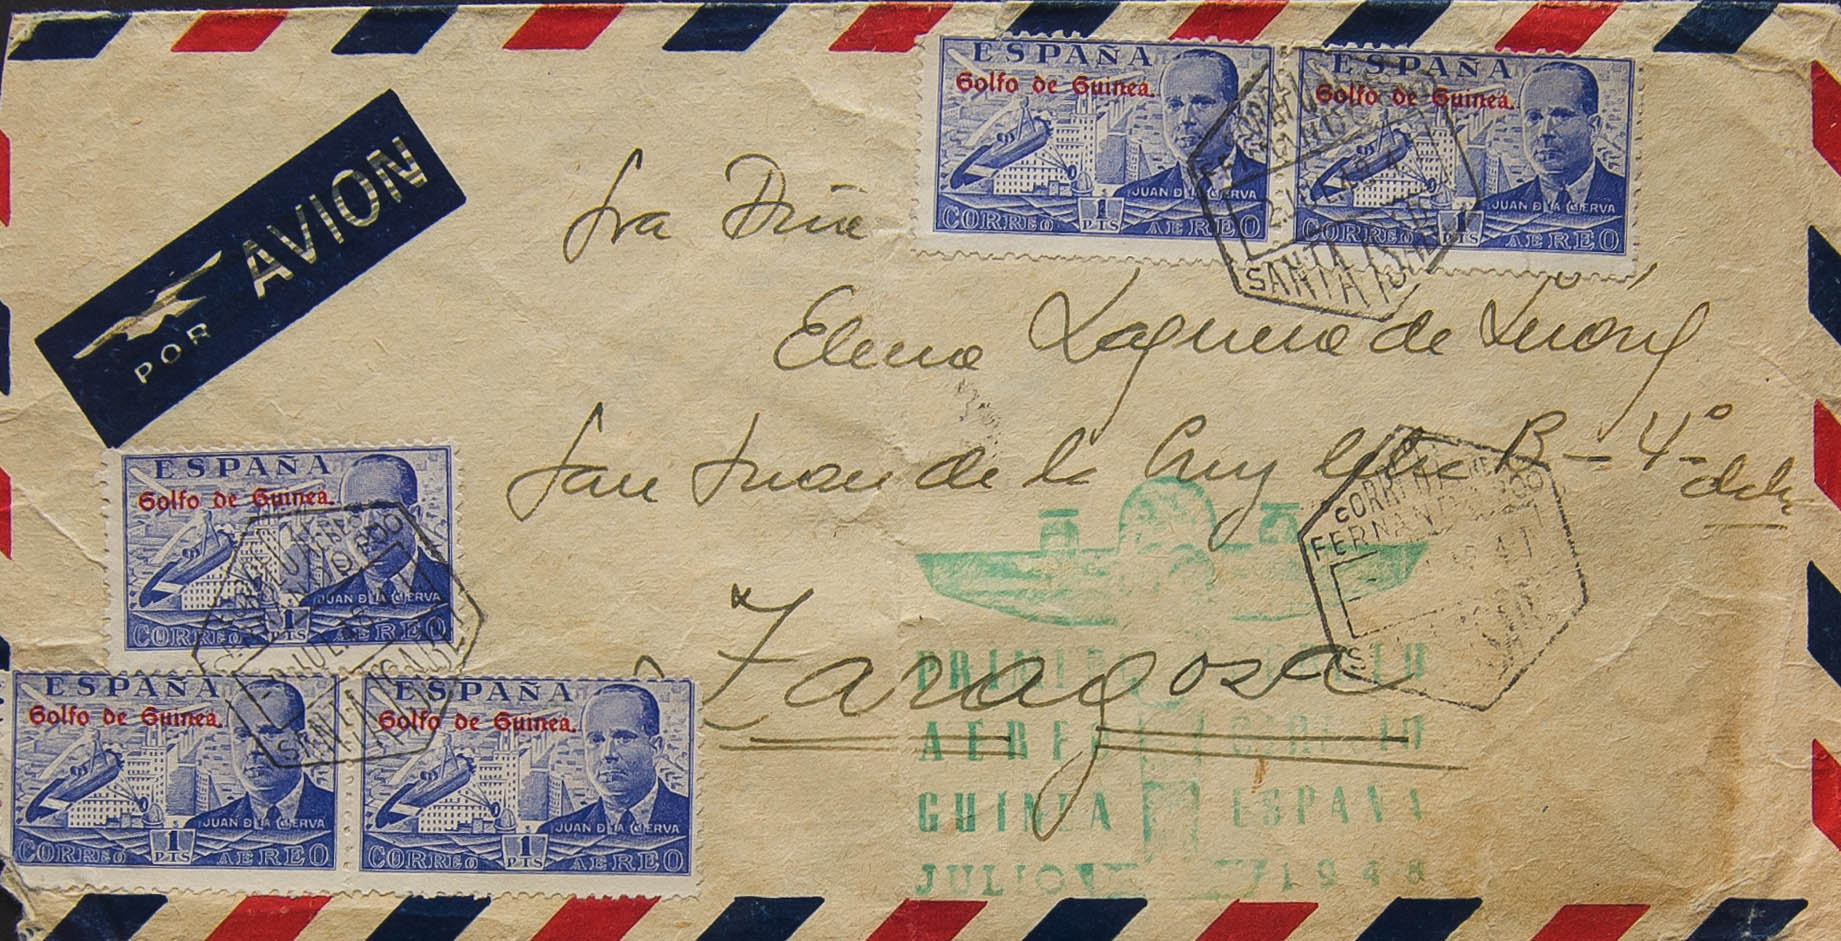 ESPAÑA
Golfo de Guinea.
JUAN DE LA CIERVA
CORREO 1 PTS AEREO
ESPAÑA
Golfo de Guinea.
JUAN DE LA CIERVA
CORREO 1 PTS AEREO
SANTA ISABEL
POR AVION
Sra Dña
Elena Laguna de
San Juan de la Cruz B - 4º
Zaragoza
CORREO
FERNANDO POO
ESPAÑA
Golfo de Guinea.
JUAN DE LA CIERVA
CORREO 1 PTS AEREO
FERNANDO POO
SANTA ISABEL
ESPAÑA
Golfo de Guinea.
JUAN DE LA CIERVA
CORREO 1 PTS AEREO
ESPAÑA
Golfo de Guinea.
JUAN DE LA CIERVA
CORREO 1 PTS AEREO
PRIMER
AEREO
GUINEA ESPAÑA
JULIO 1948